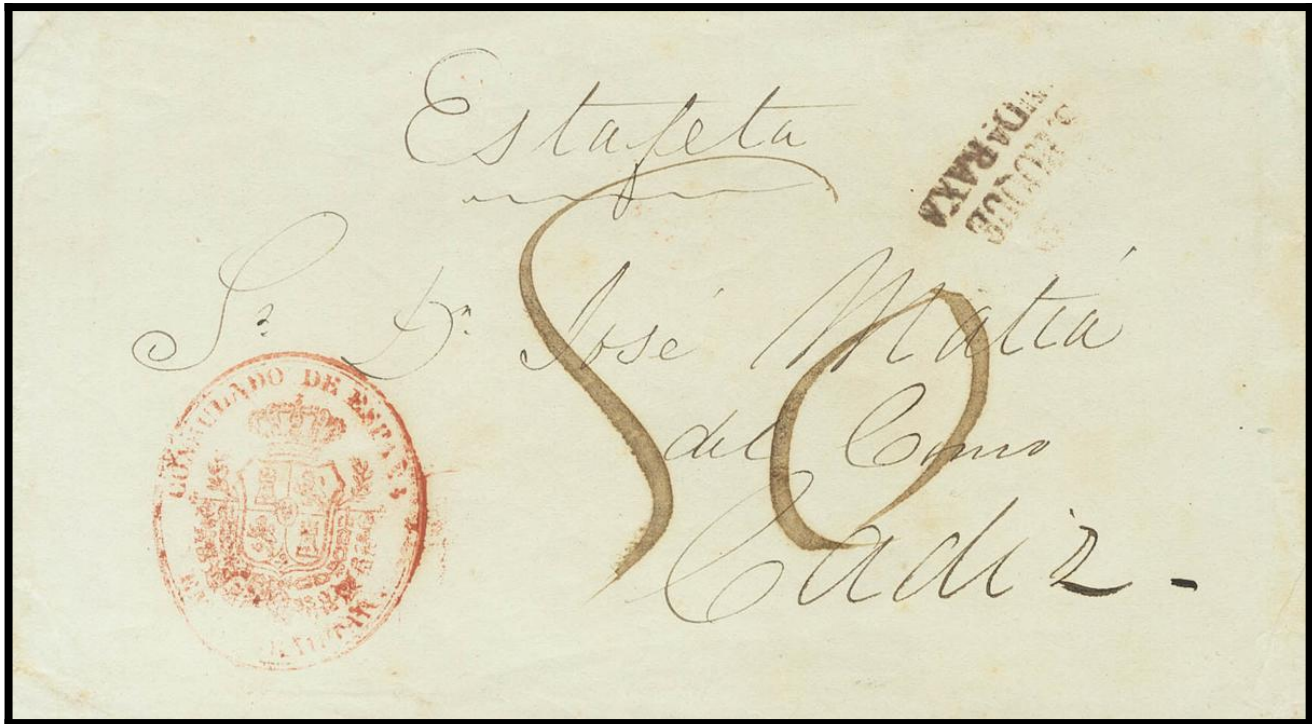 Estafeta
S. ROQUE
NDA. BAXA
Sr. Dn. José Matiá
50
del Como
Cadiz -
CONSULADO DE ESPAÑA